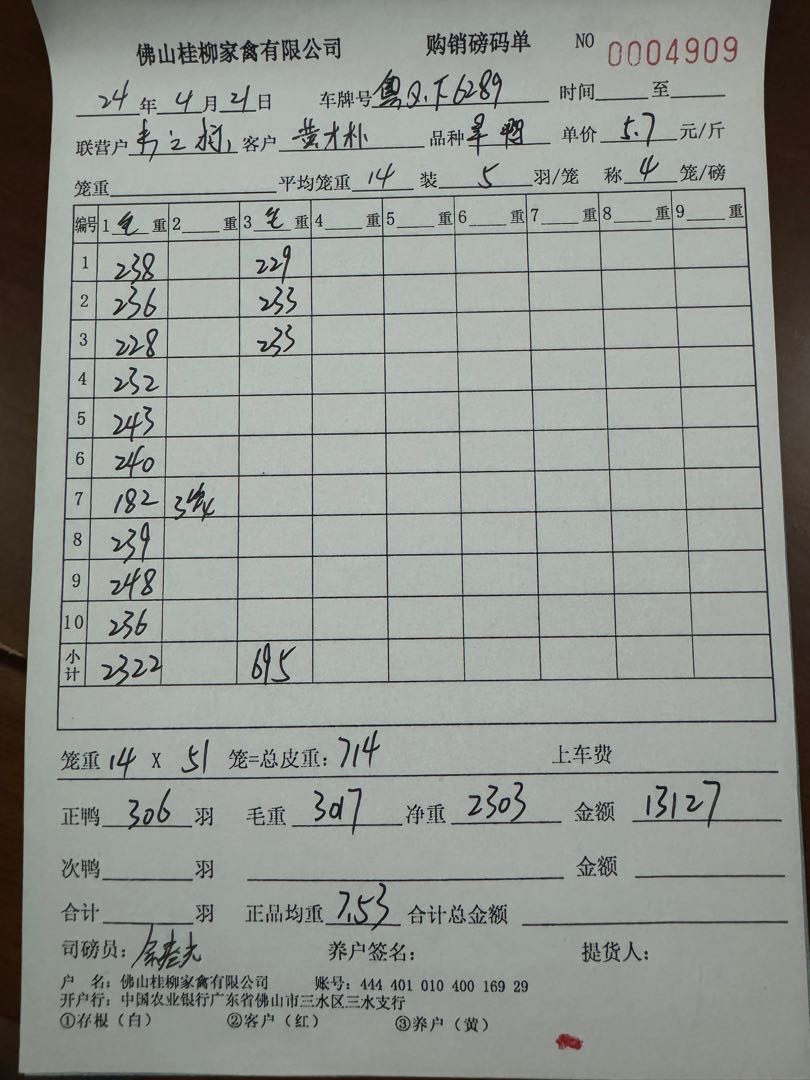 佛山桂柳家禽有限公司 购销磅码单 NO 0004909
24年4月21日 车牌号粤Q.F6289 时间 至
联营户 客户 黄才朴 品种 单价 5.7 元/斤
笼重 平均笼重 14 装 5 羽/笼 称 4 笼/磅
编号 1 毛 重 2 重 3 毛 重 4 重 5 重 6 重 7 重 8 重 9 重
1 238 229
2 236 233
3 228 233
4 232
5 243
6 240
7 182 3
8 239
9 248
10 236
小计 2322 695
笼重 14 X 51 笼=总皮重: 714 上车费
正鸭 306 羽 毛重 3017 净重 2303 金额 13127
次鸭 羽 金额
合计 羽 正品均重 7.53 合计总金额
司磅员: 养户签名: 提货人:
户 名: 佛山桂柳家禽有限公司 账号: 444 401 010 400 169 29
开户行: 中国农业银行广东省佛山市三水区三水支行
①存根（白） ②客户（红） ③养户（黄）